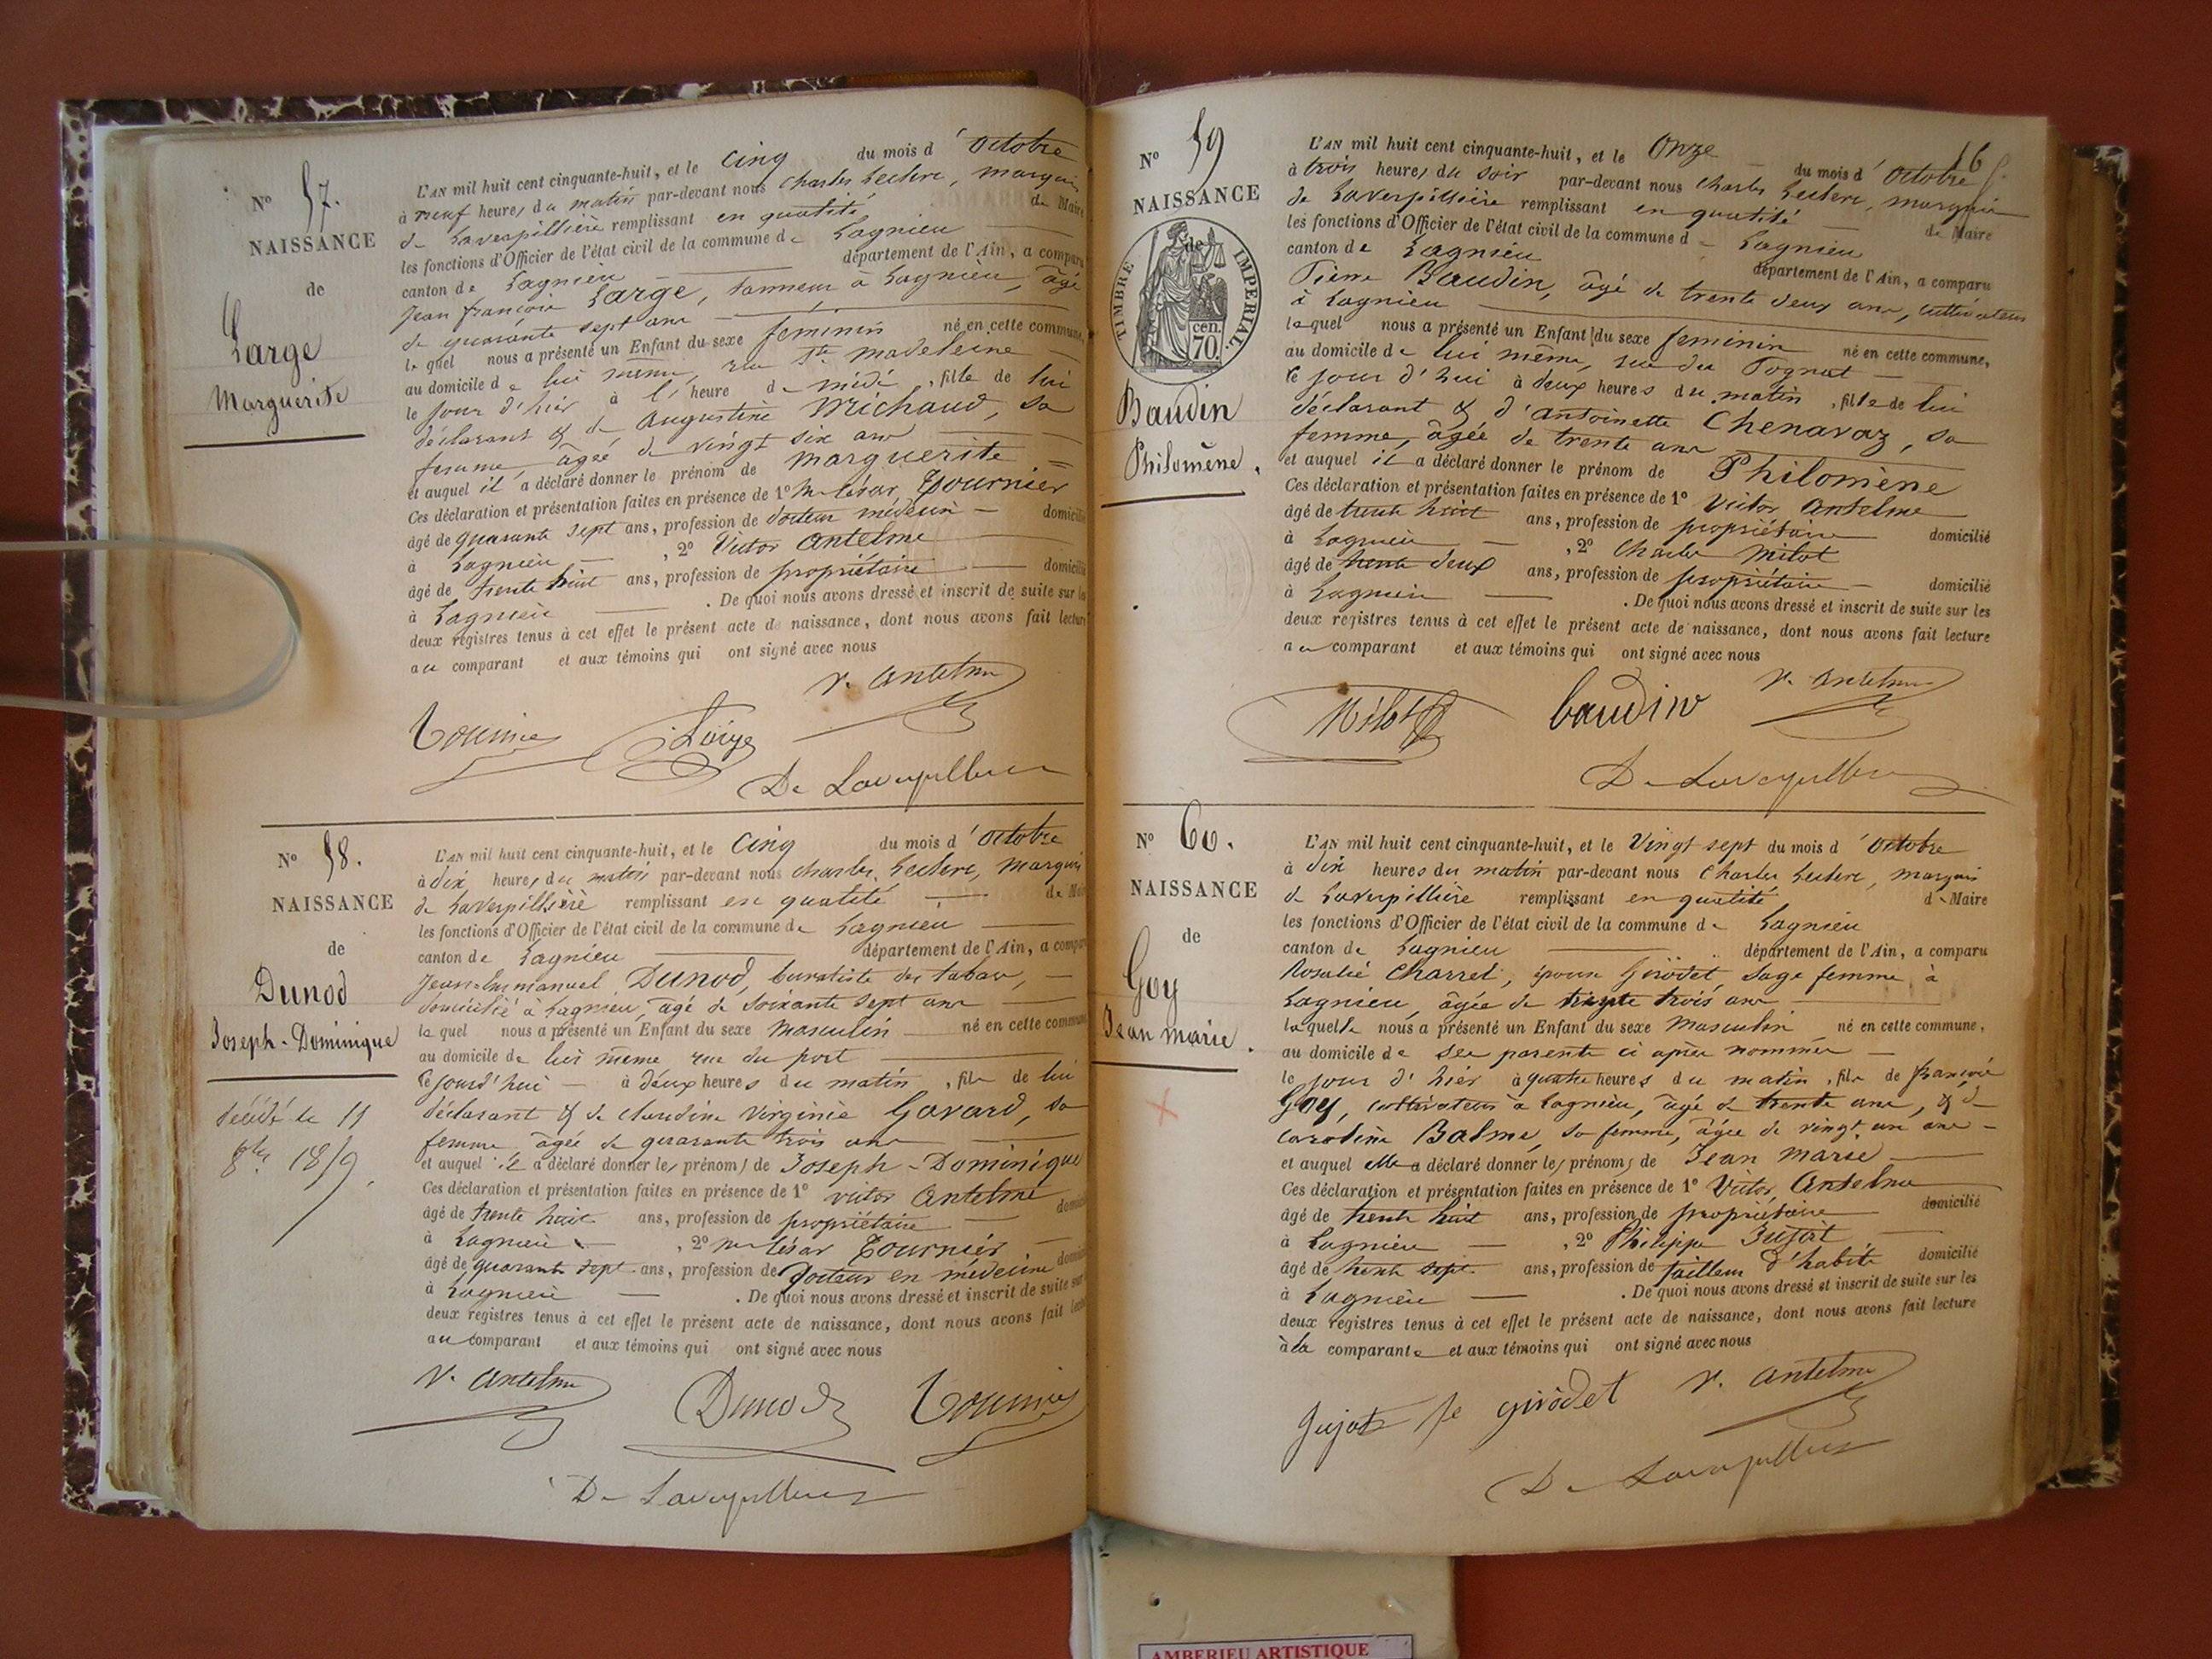 N° 57.
NAISSANCE
de
Large
Marguerite
L'AN mil huit cent cinquante-huit, et le Cinq du mois d'Octobre
à neuf heures du matin par-devant nous Charles Leclerc, marquis
de Laverpillière remplissant en qualité de Maire
les fonctions d'Officier de l'état civil de la commune de Lagnieu
canton de Lagnieu département de l'Ain, a comparu
Jean françois Large, tanneur à Lagnieu, âgé
de quarante sept ans
lequel nous a présenté un Enfant du sexe féminin né en cette commune,
au domicile de lui même, rue Ste madeleine
le jour d'hier à l'heure de midi, fille de lui
déclarant & de Augustine Michaud, sa
femme, âgée de vingt six ans
et auquel il a déclaré donner le prénom de Marguerite
Ces déclaration et présentation faites en présence de 1° Mr César Tournier
âgé de quarante sept ans, profession de docteur médecin domicilié
à Lagnieu, 2° Victor Antelme
âgé de trente huit ans, profession de propriétaire domicilié
à Lagnieu. De quoi nous avons dressé et inscrit de suite sur les
deux registres tenus à cet effet le présent acte de naissance, dont nous avons fait lecture
au comparant et aux témoins qui ont signé avec nous
V. Antelme
Tournier Large
De Laverpilliere
N° 58.
NAISSANCE
de
Dunod
Joseph-Dominique
décédé le 11
8bre 1859.
L'AN mil huit cent cinquante-huit, et le Cinq du mois d'Octobre
à dix heures du matin par-devant nous Charles Leclerc, Marquis
de Laverpillière remplissant en qualité de Maire
les fonctions d'Officier de l'état civil de la commune de Lagnieu
canton de Lagnieu département de l'Ain, a comparu
Jean-Emmanuel Dunod, buraliste des tabacs,
domicilié à Lagnieu, âgé de soixante sept ans
lequel nous a présenté un Enfant du sexe masculin né en cette commune
au domicile de lui même rue du port
le jourd'hui à deux heures du matin, fils de lui
déclarant & de Claudine Virginie Gavard, sa
femme âgée de quarante trois ans
et auquel il a déclaré donner les prénoms de Joseph-Dominique
Ces déclaration et présentation faites en présence de 1° Victor Antelme
âgé de trente huit ans, profession de propriétaire domicilié
à Lagnieu, 2° Mr César Tournier
âgé de quarante sept ans, profession de Docteur en médecine domicilié
à Lagnieu. De quoi nous avons dressé et inscrit de suite sur
deux registres tenus à cet effet le présent acte de naissance, dont nous avons fait lecture
au comparant et aux témoins qui ont signé avec nous
V. Antelme Dunod Tournier
De Laverpilliere
16
N° 59
NAISSANCE
de
TIMBRE IMPERIAL.
70 cen.
Baudin
Philomène.
L'AN mil huit cent cinquante-huit, et le Onze du mois d'Octobre
à trois heures du soir par-devant nous Charles Leclerc, marquis
de Laverpillière remplissant en qualité de Maire
les fonctions d'Officier de l'état civil de la commune de Lagnieu
canton de Lagnieu département de l'Ain, a comparu
Pierre Baudin, âgé de trente deux ans, cultivateur
à Lagnieu
lequel nous a présenté un Enfant du sexe féminin né en cette commune,
au domicile de lui même, rue du Pognat
le jour d'hui à deux heures du matin, fille de lui
déclarant & d'Antoinette Chenavaz, sa
femme, âgée de trente ans
et auquel il a déclaré donner le prénom de Philomène
Ces déclaration et présentation faites en présence de 1° Victor Antelme
âgé de trente huit ans, profession de propriétaire domicilié
à Lagnieu, 2° Charles Milot
âgé de trente deux ans, profession de propriétaire domicilié
à Lagnieu. De quoi nous avons dressé et inscrit de suite sur les
deux registres tenus à cet effet le présent acte de naissance, dont nous avons fait lecture
au comparant et aux témoins qui ont signé avec nous
Milot baudin V. Antelme
De Laverpilliere
N° 60.
NAISSANCE
de
Goy
Jean marie.
L'AN mil huit cent cinquante-huit, et le Vingt sept du mois d'Octobre
à dix heures du matin par-devant nous Charles Leclerc, marquis
de Laverpillière remplissant en qualité de Maire
les fonctions d'Officier de l'état civil de la commune de Lagnieu
canton de Lagnieu département de l'Ain, a comparu
Rosalie Charret, épouse Girodet, sage femme à
Lagnieu, âgée de trente trois ans
laquelle nous a présenté un Enfant du sexe Masculin né en cette commune,
au domicile de ses parents ci après nommés
le jour d'hier à quatre heures du matin, fils de françois
Goy, cultivateur à Lagnieu, âgé de trente ans, & de
Caroline Balme, sa femme, âgée de vingt un ans
et auquel elle a déclaré donner les prénoms de Jean Marie
Ces déclaration et présentation faites en présence de 1° Victor Antelme
âgé de trente huit ans, profession de propriétaire domicilié
à Lagnieu, 2° Philippe Jujat
âgé de trente sept ans, profession de tailleur d'habits domicilié
à Lagnieu. De quoi nous avons dressé et inscrit de suite sur les
deux registres tenus à cet effet le présent acte de naissance, dont nous avons fait lecture
à la comparante et aux témoins qui ont signé avec nous
Jujat fe girodet V. Antelme
De Laverpilliere
AMBERIEU ARTISTIQUE